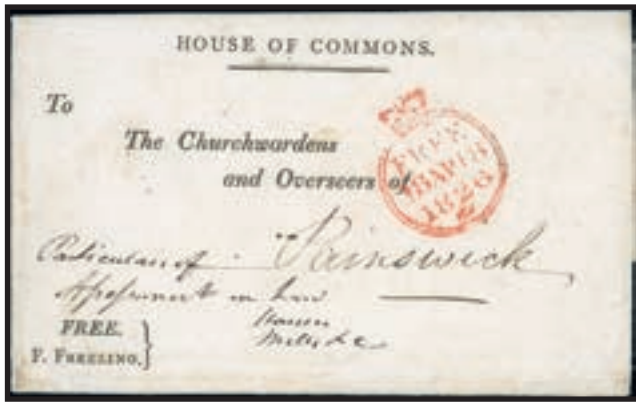 HOUSE OF COMMONS.
To
The Churchwardens
and Overseers of
FREE
1826
Painswick
Particulars of
Assessment on
Houses
Mills &c
FREE.
F. FREELING.